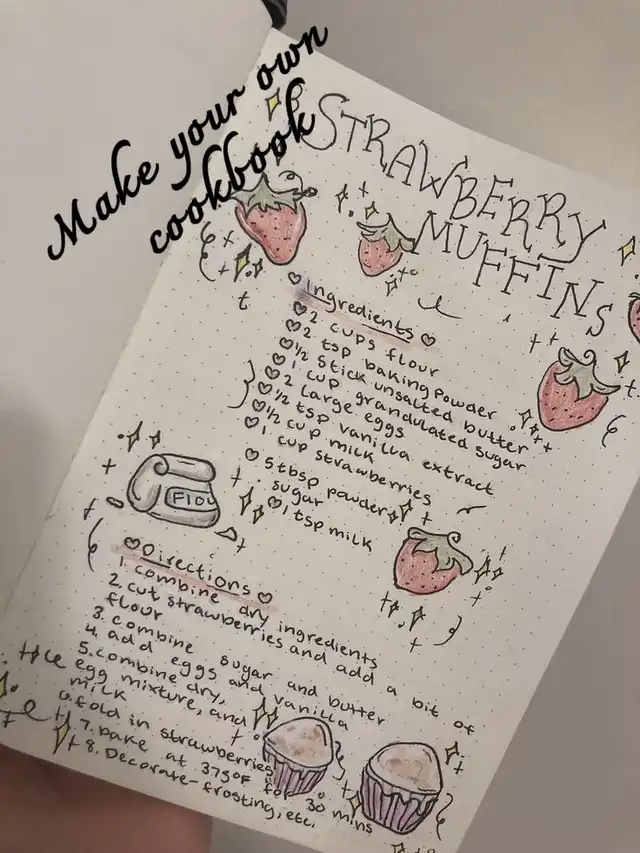 Make your own
cookbook
STRAWBERRY
MUFFINS
Ingredients
2 cups flour
2 tsp baking powder
1/2 stick unsalted butter
1 cup grandulated sugar
2 large eggs
1/2 tsp vanilla extract
1/2 cup milk
1 cup strawberries
5 tbsp powder
sugar
1 tsp milk
Flou
Directions
1. combine dry ingredients
2. cut strawberries and add a bit of
flour
3. combine sugar and butter
4. add eggs and vanilla
5. combine dry,
egg mixture, and
milk
6. fold in strawberries
7. bake at 375°F for 30 mins
8. Decorate-frosting, etc.